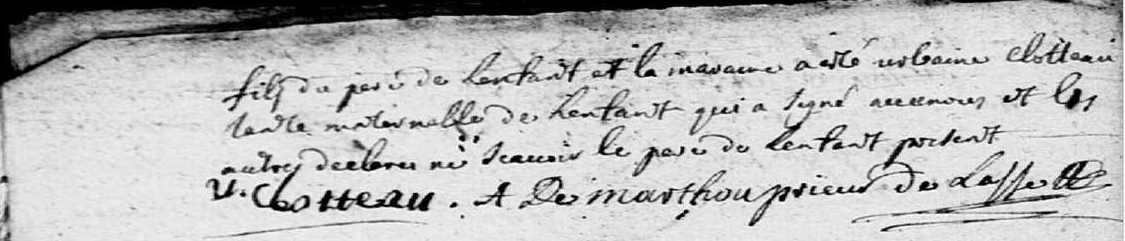 fils du pere de lenfant et la maraine a esté urbaine Clotteau
tante maternelle de lenfant qui a signé avecnous et les
autres declares ne scavoir le pere de lenfant present
U. Clotteau . A De marthou prieur de Lasse